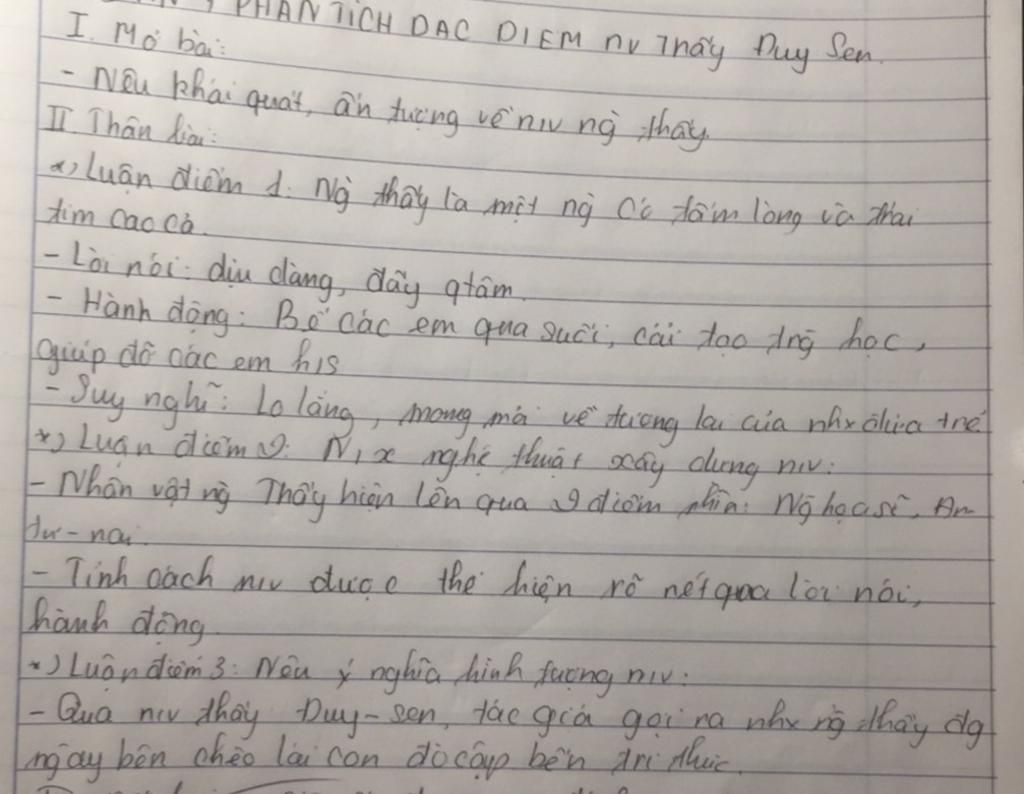 PHÂN TÍCH DAC DIEM nv Thầy Duy Sen.
I. Mở bài:
- Nêu khái quát, ấn tượng về nv ng` thầy
II Thân bài:
*) Luận điểm 1. Ng` thầy là một ng` có tấm lòng và trái
tim cao cả.
- Lời nói: dịu dàng, đầy qtâm.
- Hành động: Bế các em qua suối, cải tạo trg học,
giúp đỡ các em h/s
- Suy nghĩ: Lo lắng, mong mỏi về tương lai của nhx đứa trẻ
*) Luận điểm 2: N/x nghệ thuật xây dựng nv:
- Nhân vật ng` Thầy hiện lên qua 2 điểm nhìn: Ng` họa sĩ, An
tư-nai.
- Tính cách nv được thể hiện rõ nét qua lời nói,
hành động.
*) Luận điểm 3: Nêu ý nghĩa hình tượng nv:
- Qua nv thầy Duy-sen, tác giả gợi ra nhx ng` thầy đg
ngày bên chèo lái con đò cập bến tri thức.